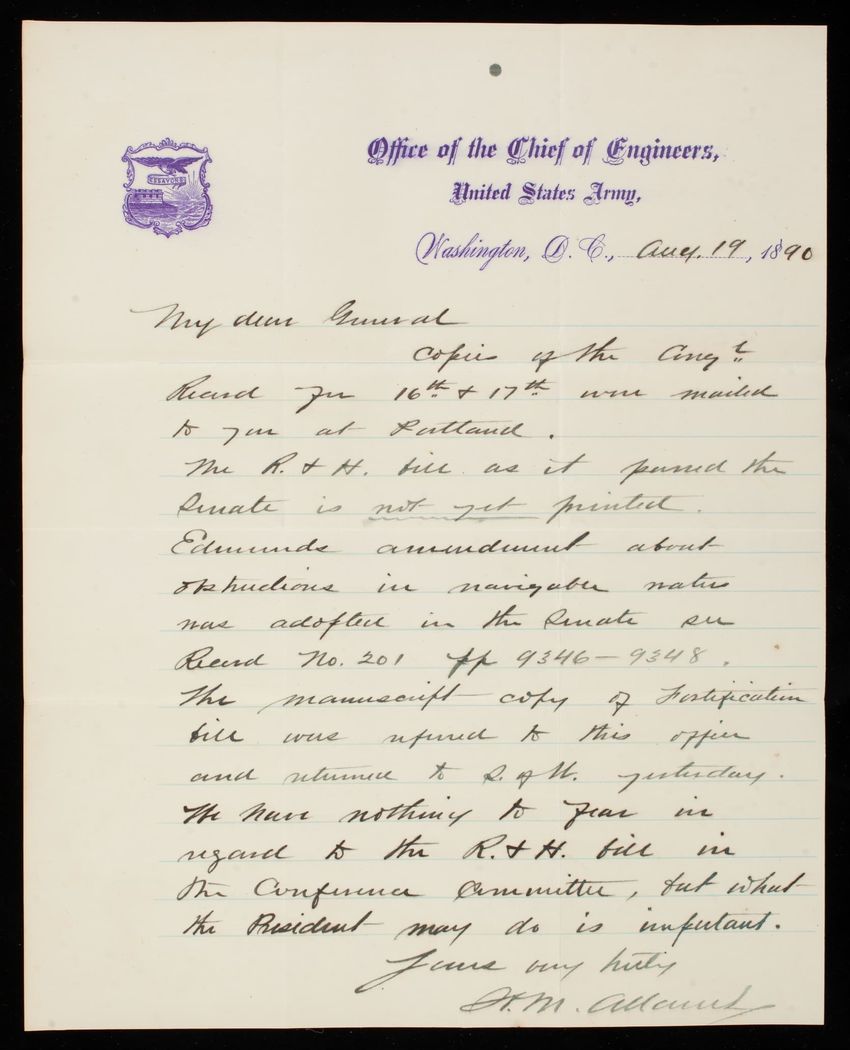 ESSAYONS
Office of the Chief of Engineers,
United States Army,
Washington, D. C., Aug. 19, 1890
My dear General
Copies of the Congl
Record for 16th & 17th were mailed
to you at Portland.
The R. & H. bill as it passed the
Senate is not yet printed.
Edmunds amendment about
obstructions in navigable waters
was adopted in the Senate see
Record No. 201 pp 9346-9348.
The manuscript copy of Fortification
bill was referred to this office
and returned to S. of W. yesterday.
We have nothing to fear in
regard to the R. & H. bill in
the Conference Committee, but what
the President may do is important.
Yours very truly
H. M. Adams